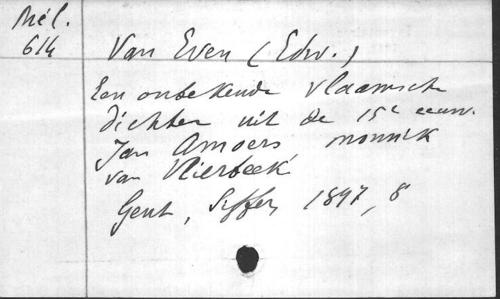 Mél.
614
Van Even (Edw.)
Een onbekende vlaamsche
dichter uit de 15e eeuw.
Jan Amoers monnik
van Vlierbeek
Gent, Siffer, 1897, 8